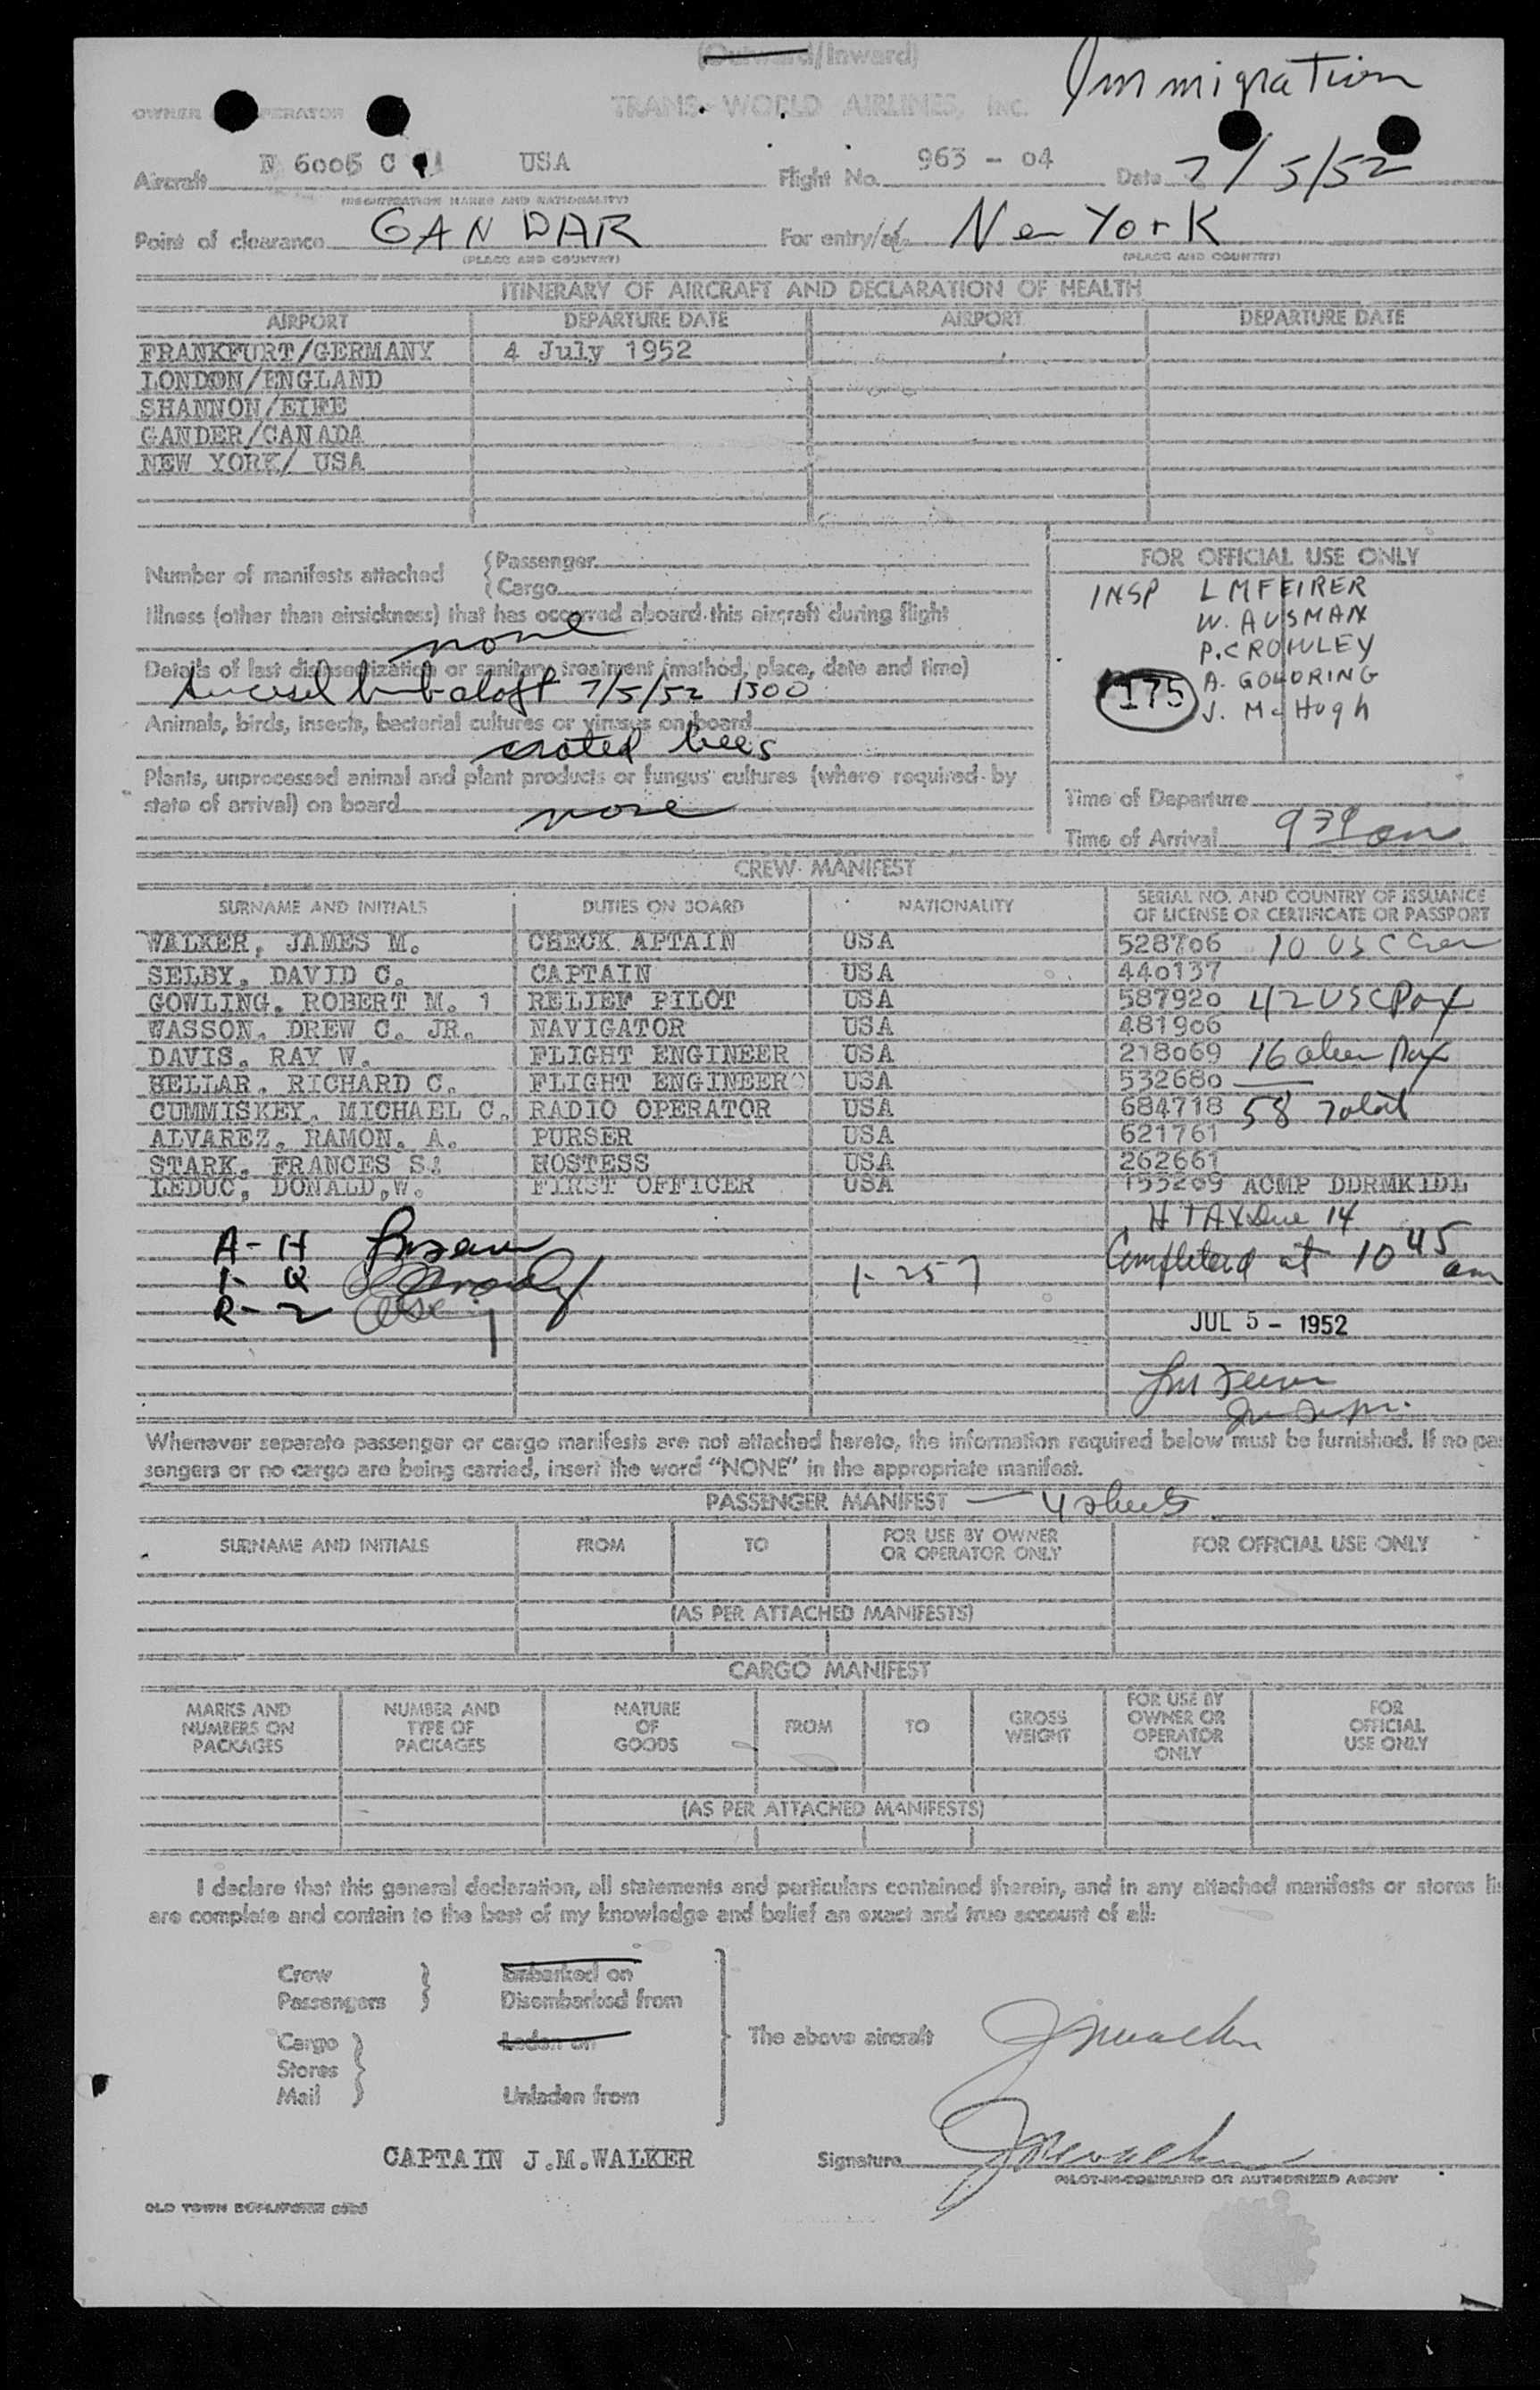 (Outward/Inward)
Immigration
OWNER OPERATOR TRANS-WORLD AIRLINES, INC.
Aircraft N 6005 C USA Flight No. 963 - 04 Date 7/5/52
(REGISTRATION MARKS AND NATIONALITY)
Point of clearance GANDAR For entry/at New York
(PLACE AND COUNTRY) (PLACE AND COUNTRY)
ITINERARY OF AIRCRAFT AND DECLARATION OF HEALTH
AIRPORT DEPARTURE DATE AIRPORT DEPARTURE DATE
FRANKFURT/GERMANY 4 July 1952
LONDON/ENGLAND
SHANNON/EIRE
GANDER/CANADA
NEW YORK/ USA
Number of manifests attached (Passenger
(Cargo
Illness (other than airsickness) that has occurred aboard this aircraft during flight
none
Details of last disinsectization or sanitary treatment (method, place, date and time)
aloft 7/5/52 1300
Animals, birds, insects, bacterial cultures or viruses on board
crated bees
Plants, unprocessed animal and plant products or fungus cultures (where required by
state of arrival) on board
none
FOR OFFICIAL USE ONLY
INSP L M FEIRER
W. AUSMAN
P. CROWLEY
175 A. GOLDRING
J. McHugh
Time of Departure
Time of Arrival 9 39 am
CREW MANIFEST
SURNAME AND INITIALS DUTIES ON BOARD NATIONALITY SERIAL NO. AND COUNTRY OF ISSUANCE
OF LICENSE OR CERTIFICATE OR PASSPORT
WALKER, JAMES M. CHECK APTAIN USA 528706 10 USC Crew
SELBY, DAVID C. CAPTAIN USA 440137
GOWLING, ROBERT M. 1 RELIEF PILOT USA 587920 42 USC Pax
WASSON, DREW C. JR. NAVIGATOR USA 481906
DAVIS, RAY W. FLIGHT ENGINEER USA 218069 16 alien Pax
HELLAR, RICHARD C. FLIGHT ENGINEER USA 532680
CUMMISKEY, MICHAEL C. RADIO OPERATOR USA 684718 58 Total
ALVAREZ, RAMON, A. PURSER USA 621761
STARK, FRANCES S. HOSTESS USA 262661
LEDUC, DONALD,W. FIRST OFFICER USA 153269 ACMP DDRMKIDL
H TAX Due 14
A - H
I - Q 1-257 Completed at 10 45 am
R - Z
JUL 5 - 1952
Whenever separate passenger or cargo manifests are not attached hereto, the information required below must be furnished. If no pas
sengers or no cargo are being carried, insert the word "NONE" in the appropriate manifest.
PASSENGER MANIFEST — 4 sheets
SURNAME AND INITIALS FROM TO FOR USE BY OWNER
OR OPERATOR ONLY FOR OFFICIAL USE ONLY
(AS PER ATTACHED MANIFESTS)
CARGO MANIFEST
MARKS AND
NUMBERS ON
PACKAGES NUMBER AND
TYPE OF
PACKAGES NATURE
OF
GOODS FROM TO GROSS
WEIGHT FOR USE BY
OWNER OR
OPERATOR
ONLY FOR
OFFICIAL
USE ONLY
(AS PER ATTACHED MANIFESTS)
I declare that this general declaration, all statements and particulars contained therein, and in any attached manifests or stores lis
are complete and contain to the best of my knowledge and belief an exact and true account of all:
Crew Embarked on
Passengers Disembarked from
Cargo Laden on The above aircraft JMWalker
Stores
Mail Unladen from
CAPTAIN J.M.WALKER Signature JMWalker
PILOT-IN-COMMAND OR AUTHORIZED AGENT
OLD TOWN